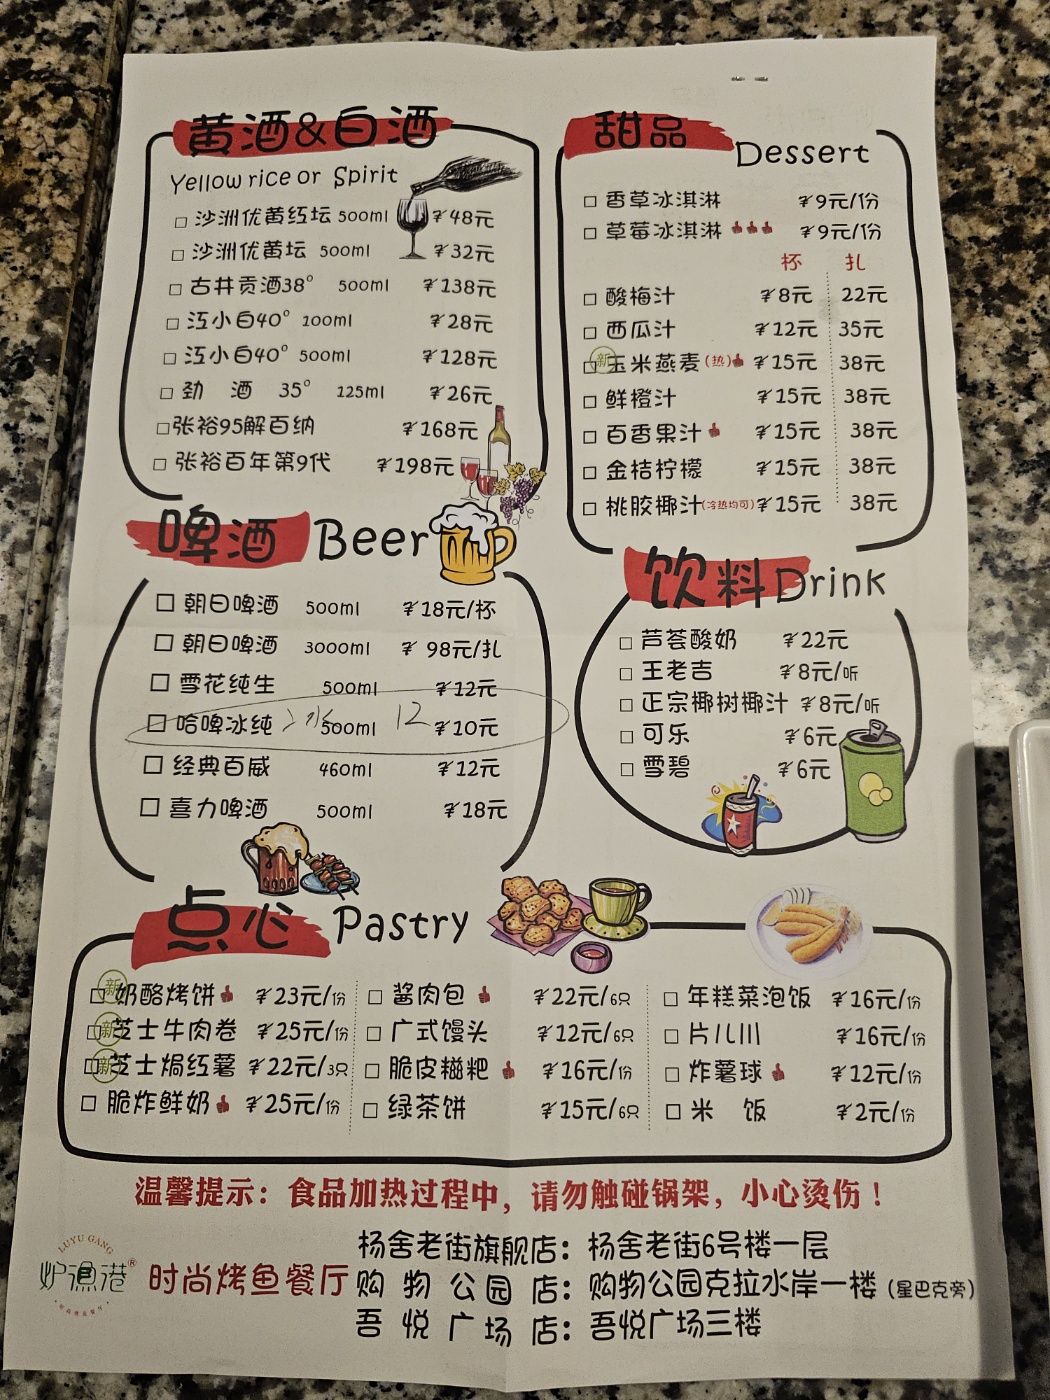 黄酒&白酒
Yellow rice or Spirit
□ 沙洲优黄红坛 500ml ¥48元
□ 沙洲优黄坛 500ml ¥32元
□ 古井贡酒38° 500ml ¥138元
□ 江小白40° 100ml ¥28元
□ 江小白40° 500ml ¥128元
□ 劲 酒 35° 125ml ¥26元
□ 张裕95解百纳 ¥168元
□ 张裕百年第9代 ¥198元
啤酒 Beer
□ 朝日啤酒 500ml ¥18元/杯
□ 朝日啤酒 3000ml ¥98元/扎
□ 雪花纯生 500ml ¥12元
□ 哈啤冰纯 500ml 12 ¥10元
□ 经典百威 460ml ¥12元
□ 喜力啤酒 500ml ¥18元
甜品 Dessert
□ 香草冰淇淋 ¥9元/份
□ 草莓冰淇淋 ¥9元/份
杯 扎
□ 酸梅汁 ¥8元 22元
□ 西瓜汁 ¥12元 35元
新 □ 玉米燕麦(热) ¥15元 38元
□ 鲜橙汁 ¥15元 38元
□ 百香果汁 ¥15元 38元
□ 金桔柠檬 ¥15元 38元
□ 桃胶椰汁(冷热均可) ¥15元 38元
饮料 Drink
□ 芦荟酸奶 ¥22元
□ 王老吉 ¥8元/听
□ 正宗椰树椰汁 ¥8元/听
□ 可乐 ¥6元
□ 雪碧 ¥6元
点心 Pastry
新 □ 奶酪烤饼 ¥23元/份
新 □ 芝士牛肉卷 ¥25元/份
新 □ 芝士焗红薯 ¥22元/3只
□ 脆炸鲜奶 ¥25元/份
□ 酱肉包 ¥22元/6只
□ 广式馒头 ¥12元/6只
□ 脆皮糍粑 ¥16元/份
□ 绿茶饼 ¥15元/6只
□ 年糕菜泡饭 ¥16元/份
□ 片儿川 ¥16元/份
□ 炸薯球 ¥12元/份
□ 米 饭 ¥2元/份
温馨提示：食品加热过程中，请勿触碰锅架，小心烫伤！
LUYU GANG
炉渔港®
时尚烤鱼餐厅
杨舍老街旗舰店：杨舍老街6号楼一层
购物公园店：购物公园克拉水岸一楼（星巴克旁）
吾悦广场店：吾悦广场三楼